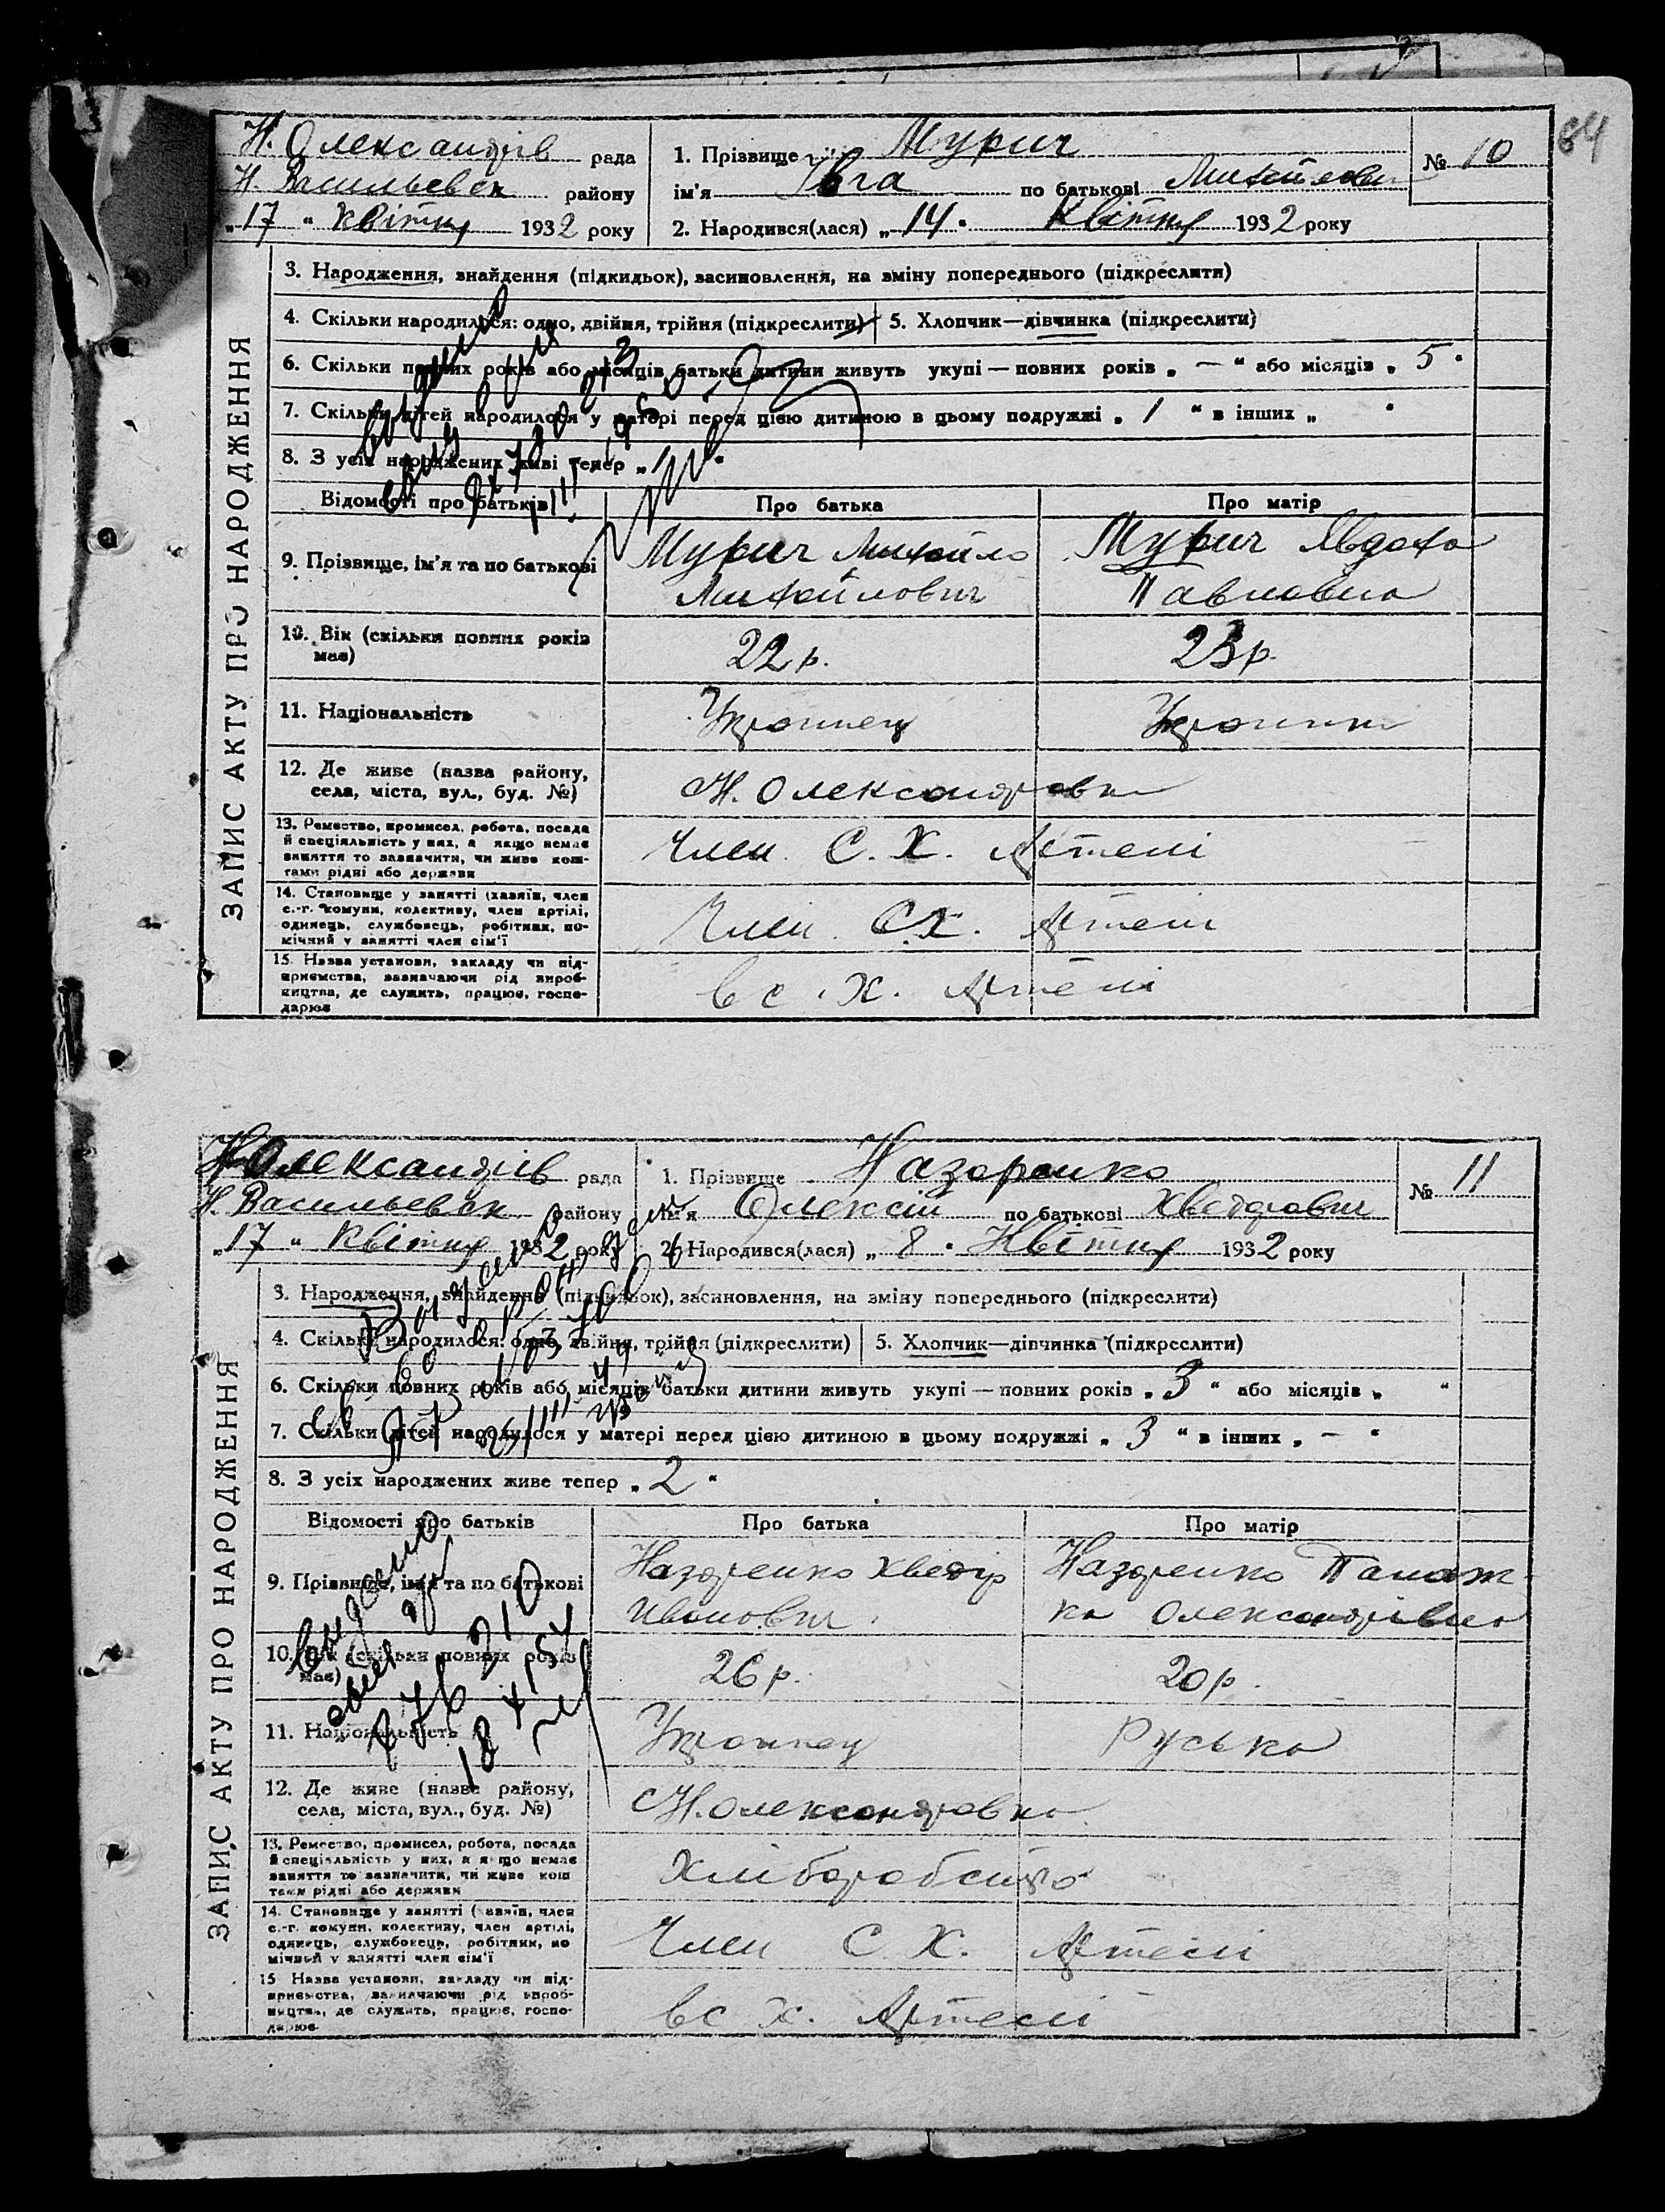 64
Н. Олександрів рада
Н. Васильевск району
„17 " Квітня 1932 року
1. Прізвище Мурич
ім'я Івга по батькові Михайловн
№ 10
2. Народився(лася) „ 14 " Квітня 1932 року
ЗАПИС АКТУ ПРО НАРОДЖЕННЯ
3. Народження, знайдення (підкидьок), засиновлення, на зміну попереднього (підкреслити)
4. Скільки народилося: одно, двійня, трійня (підкреслити) 5. Хлопчик—дівчинка (підкреслити)
6. Скільки повних років або місяців батьки дитини живуть укупі — повних років „ — " або місяців „ 5 "
7. Скільки дітей народилося у матері перед цією дитиною в цьому подружжі „ 1 " в інших „ "
8. З усіх народжених живі тепер „ "
Відомості про батьків Про батька Про матір
9. Прізвище, ім'я та по батькові
Мурич Михайло
Михайлович
Мурич Явдоха
Павловна
10. Вік (скільки повних років має) 22 р. 23 р.
11. Національність Українец Українк
12. Де живе (назва району,
села, міста, вул., буд. №)
Н. Олександровка
13. Ремество, промисел, робота, посада
й спеціяльність у них, а якщо немає
заняття то зазначити, чи живе кош-
тами рідні або держави
Член С. Х. Артелі
14. Становище у занятті (хазяїн, член
с.-г. комуни, колективу, член артілі,
одинець, службовець, робітник, по-
мічний у занятті член сім'ї
Член С.Х. Артелі
15. Назва установи, закладу чи під-
приємства, зазначаючи рід вироб-
ництва, де служить, працює, госпо-
дарює
в с. Х. Артелі
Н Олександрів рада
Н. Васильевск району
„17 " Квітня 1932 року
1. Прізвище Назаренко
ім'я Олексій по батькові Хведорович
№ 11
2. Народився(лася) „ 8 " Квітня 1932 року
ЗАПИС АКТУ ПРО НАРОДЖЕННЯ
3. Народження, знайдення (підкидьок), засиновлення, на зміну попереднього (підкреслити)
4. Скільки народилося: одно, двійня, трійня (підкреслити) 5. Хлопчик—дівчинка (підкреслити)
6. Скільки повних років або місяців батьки дитини живуть укупі — повних років „ 3 " або місяців „ "
7. Скільки дітей народилося у матері перед цією дитиною в цьому подружжі „ 3 " в інших „ — "
8. З усіх народжених живе тепер „ 2 "
Відомості про батьків Про батька Про матір
9. Прізвище, ім'я та по батькові
Назаренко Хведір
Иванович
Назаренко Панаж-
ка Олександрівна
10. Вік (скільки повних років має) 26 р. 20 р.
11. Національність Українец Руська
12. Де живе (назва району,
села, міста, вул., буд. №)
Н. Олександровка
13. Ремество, промисел, робота, посада
й спеціяльність у них, а якщо немає
заняття то зазначити, чи живе кош
тами рідні або держави
Хліборобство
14. Становище у занятті (хазяїн, член
с.-г. комуни, колективу, член артілі,
одинець, службовець, робітник, по
мічний у занятті член сім'ї
Член С. Х. Артелі
15 Назва установи, закладу чи під-
приємства, зазначаючи рід вироб-
ництва, де служить, працює, госпо-
дарює
в с х. Артелі